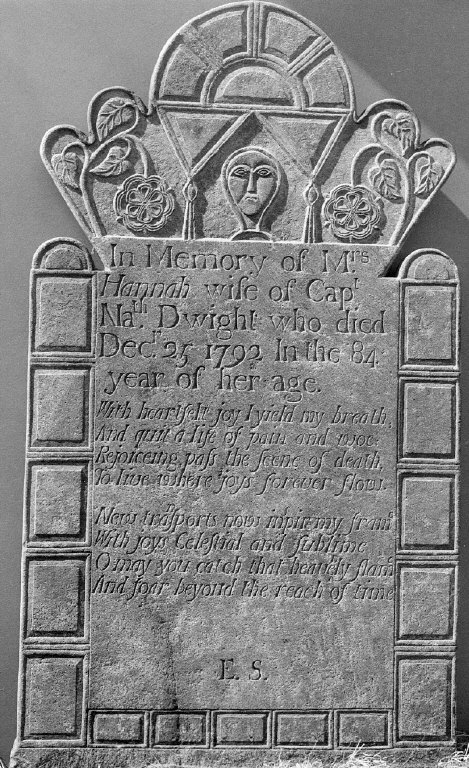 In Memory of Mrs
Hannah wife of Capt
Nath Dwight who died
Dect 25 1792 In the 84
year of her age.
With heartfelt joy I yield my breath,
And quit a life of pain and woe:
Rejoiceing, paſs the ſcene of death,
To live where joys forever flow.
New tranſports now inſpire my fram
With joys Celeſtial and ſublime
O may you catch that heavely flam
And ſoar beyond the reach of time
E. S.